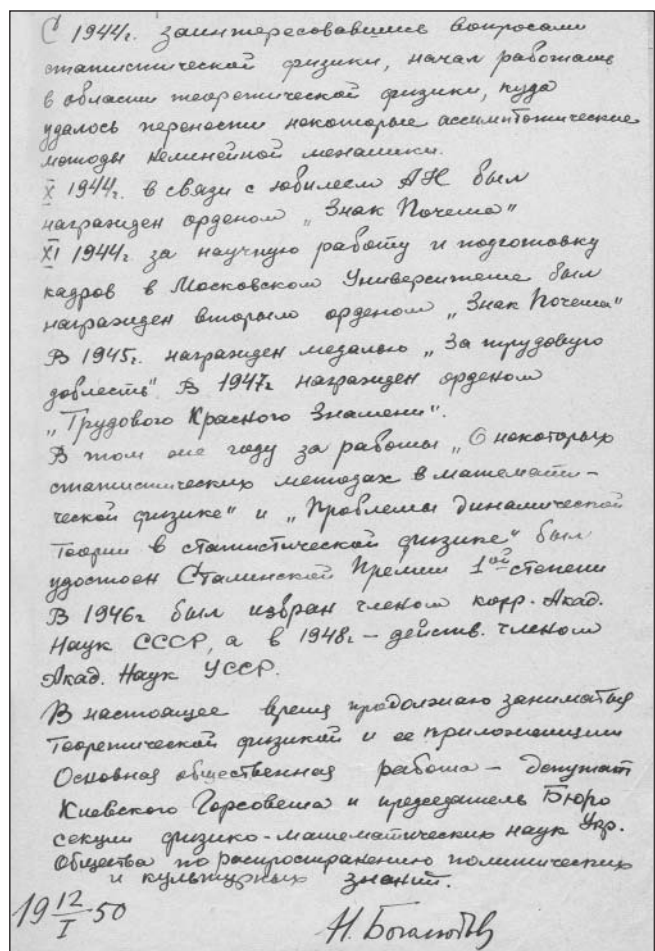 С 1944г. заинтересовавшись вопросами
статистической физики, начал работать
в области теоретической физики, куда
удалось перенести некоторые ассимптотические
методы нелинейной механики.
X 1944г. в связи с юбилеем АН был
награжден орденом „Знак Почета"
XI 1944г за научную работу и подготовку
кадров в Московском Университете был
награжден вторым орденом „Знак Почета"
В 1945г. награжден медалью „За трудовую
доблесть". В 1947г награжден орденом
„Трудового Красного Знамени".
В том же году за работы „О некоторых
статистических методах в математи-
ческой физике" и „Проблемы динамической
теории в статистической физике" был
удостоен Сталинской Премии 1ой степени
В 1946г был избран членом корр. Акад.
Наук СССР, а в 1948г – действ. членом
Акад. Наук УССР.
В настоящее время продолжаю заниматься
теоретической физикой и ее приложениями
Основная общественная работа – депутат
Киевского Горсовета и председатель Бюро
секции физико-математических наук Укр.
Общества по распространению политических
и культурных знаний.
19 12/I 50
Н. Боголюбов